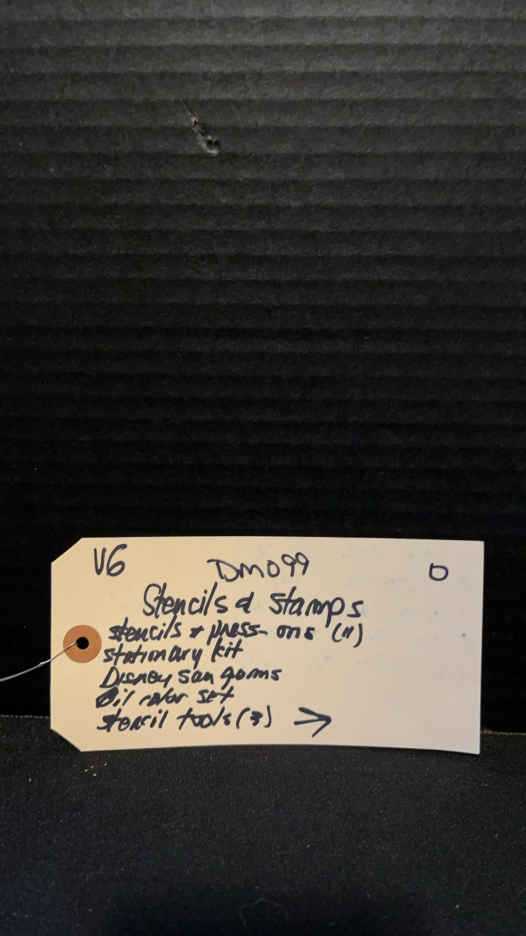 V6 DM099 O
Stencils & Stamps
stencils & press-ons (11)
stationary kit
Disney
Oil color set
stencil tools (3) →